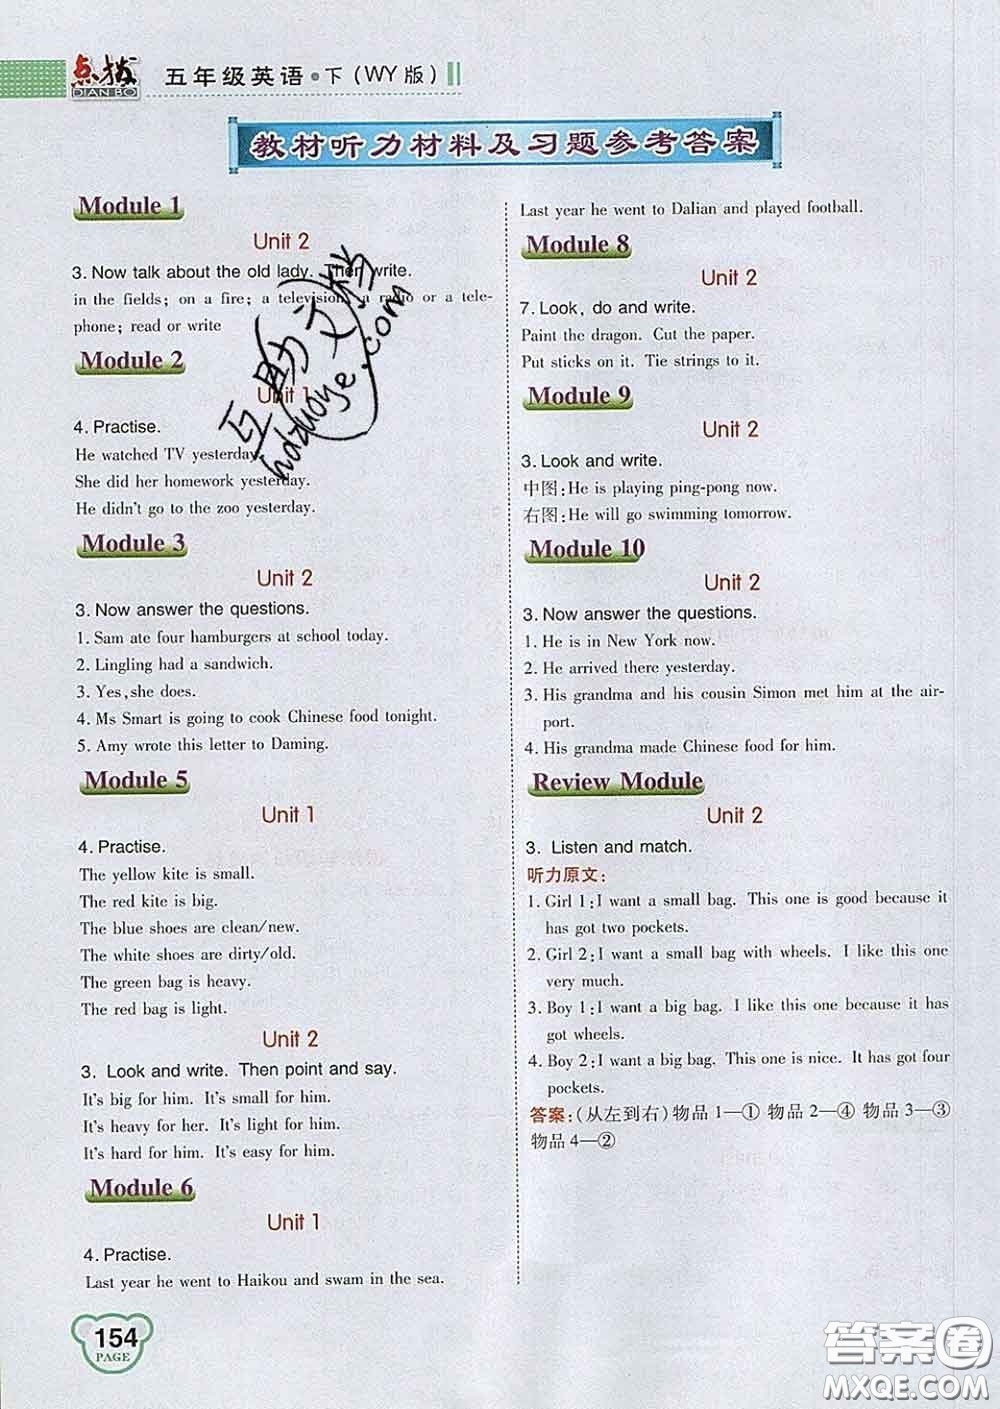 点拨
DIAN BO
五年级英语·下（WY版）
教材听力材料及习题参考答案
Module 1
Unit 2
3. Now talk about the old lady. Then write.
in the fields; on a fire; a television, a radio or a tele-
phone; read or write
Module 2
Unit 1
4. Practise.
He watched TV yesterday.
She did her homework yesterday.
He didn't go to the zoo yesterday.
Module 3
Unit 2
3. Now answer the questions.
1. Sam ate four hamburgers at school today.
2. Lingling had a sandwich.
3. Yes,she does.
4. Ms Smart is going to cook Chinese food tonight.
5. Amy wrote this letter to Daming.
Module 5
Unit 1
4. Practise.
The yellow kite is small.
The red kite is big.
The blue shoes are clean/new.
The white shoes are dirty/old.
The green bag is heavy.
The red bag is light.
Unit 2
3. Look and write. Then point and say.
It's big for him. It's small for him.
It's heavy for her. It's light for him.
It's hard for him. It's easy for him.
Module 6
Unit 1
4. Practise.
Last year he went to Haikou and swam in the sea.
154
PAGE
Last year he went to Dalian and played football.
Module 8
Unit 2
7. Look, do and write.
Paint the dragon. Cut the paper.
Put sticks on it. Tie strings to it.
Module 9
Unit 2
3. Look and write.
中图:He is playing ping-pong now.
右图:He will go swimming tomorrow.
Module 10
Unit 2
3. Now answer the questions.
1. He is in New York now.
2. He arrived there yesterday.
3. His grandma and his cousin Simon met him at the air-
port.
4. His grandma made Chinese food for him.
Review Module
Unit 2
3. Listen and match.
听力原文:
1. Girl 1:I want a small bag. This one is good because it
has got two pockets.
2. Girl 2:I want a small bag with wheels. I like this one
very much.
3. Boy 1:I want a big bag. I like this one because it has
got wheels.
4. Boy 2:I want a big bag. This one is nice. It has got four
pockets.
答案:(从左到右)物品1—① 物品2—④ 物品3—③
物品4—②
互助文档
hdzuoye.com
答案圈
MXQE.COM